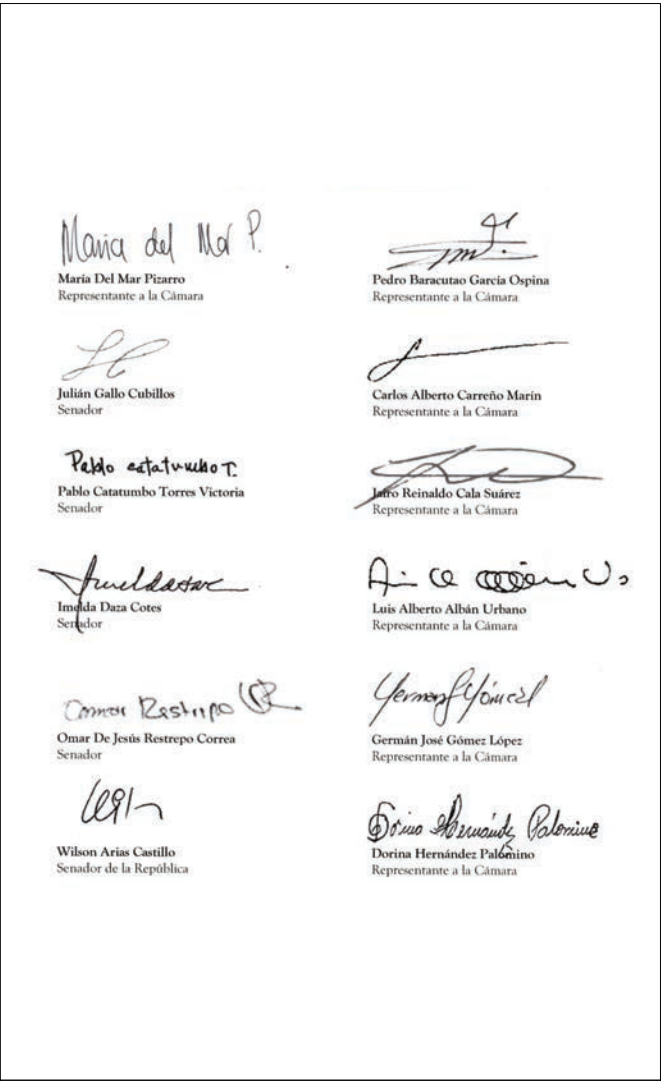 Maria del Mar P.
María Del Mar Pizarro
Representante a la Cámara
Julián Gallo Cubillos
Senador
Pablo Catatumbo T.
Pablo Catatumbo Torres Victoria
Senador
Imelda Daza Cotes
Senador
Omar Restrepo
Omar De Jesús Restrepo Correa
Senador
Wilson Arias Castillo
Senador de la República
Pedro Baracutao García Ospina
Representante a la Cámara
Carlos Alberto Carreño Marín
Representante a la Cámara
Jairo Reinaldo Cala Suárez
Representante a la Cámara
Luis Alberto Albán Urbano
Representante a la Cámara
German Gómez L
Germán José Gómez López
Representante a la Cámara
Dorina Hernández Palomino
Dorina Hernández Palomino
Representante a la Cámara